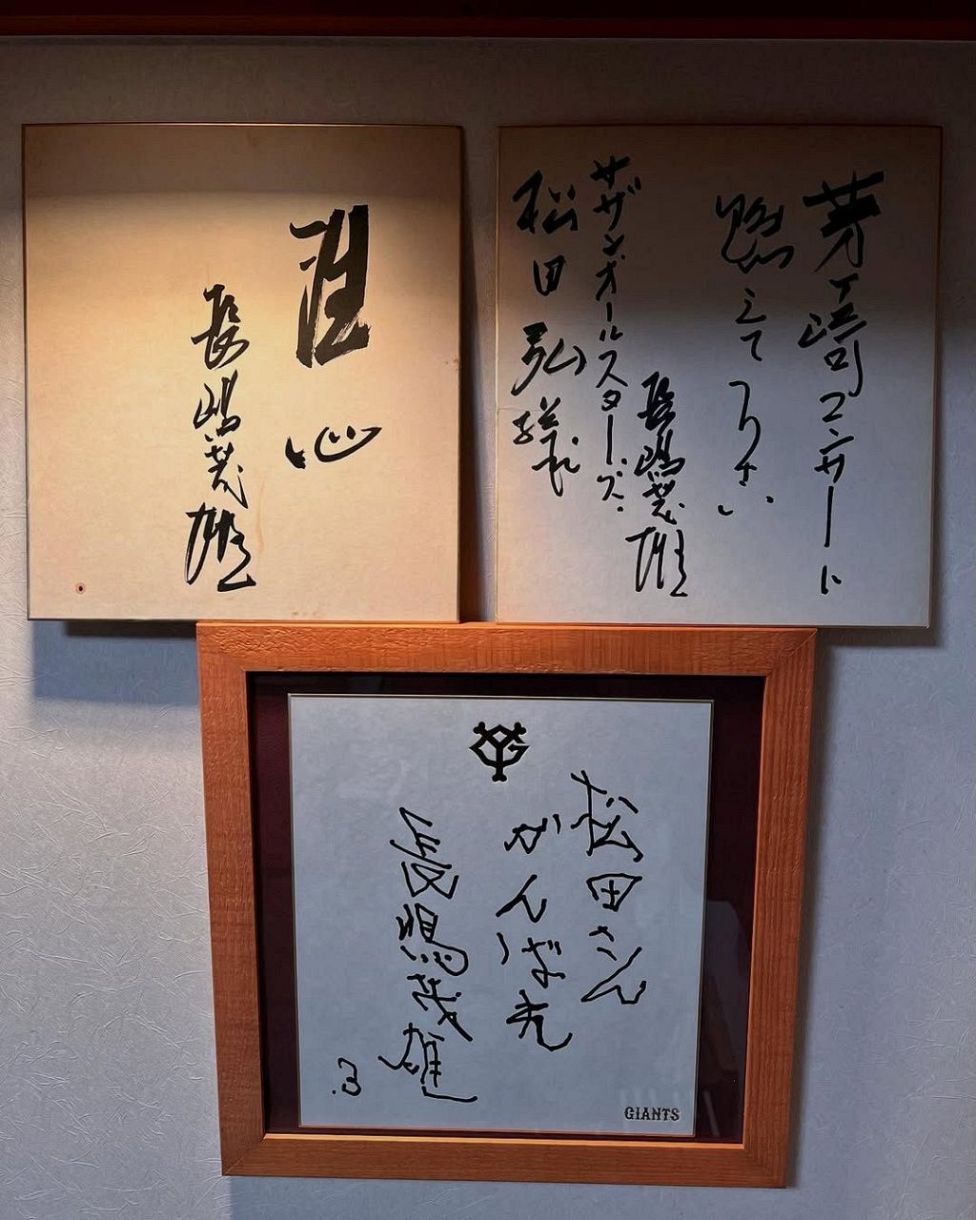 心
長嶋茂雄
茅ヶ崎コンサート
燃えて下さい
長嶋茂雄
サザンオールスターズ
松田弘様
YG
松田さん
がんばれ
長嶋茂雄
3
GIANTS